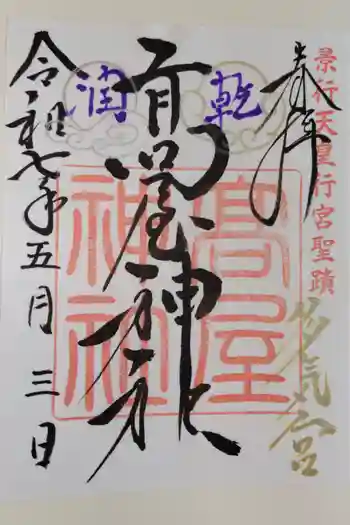 景行天皇行宮聖蹟
奉拝
乾
潤
高屋神社
高屋神社
令和七年五月三日
多気宮